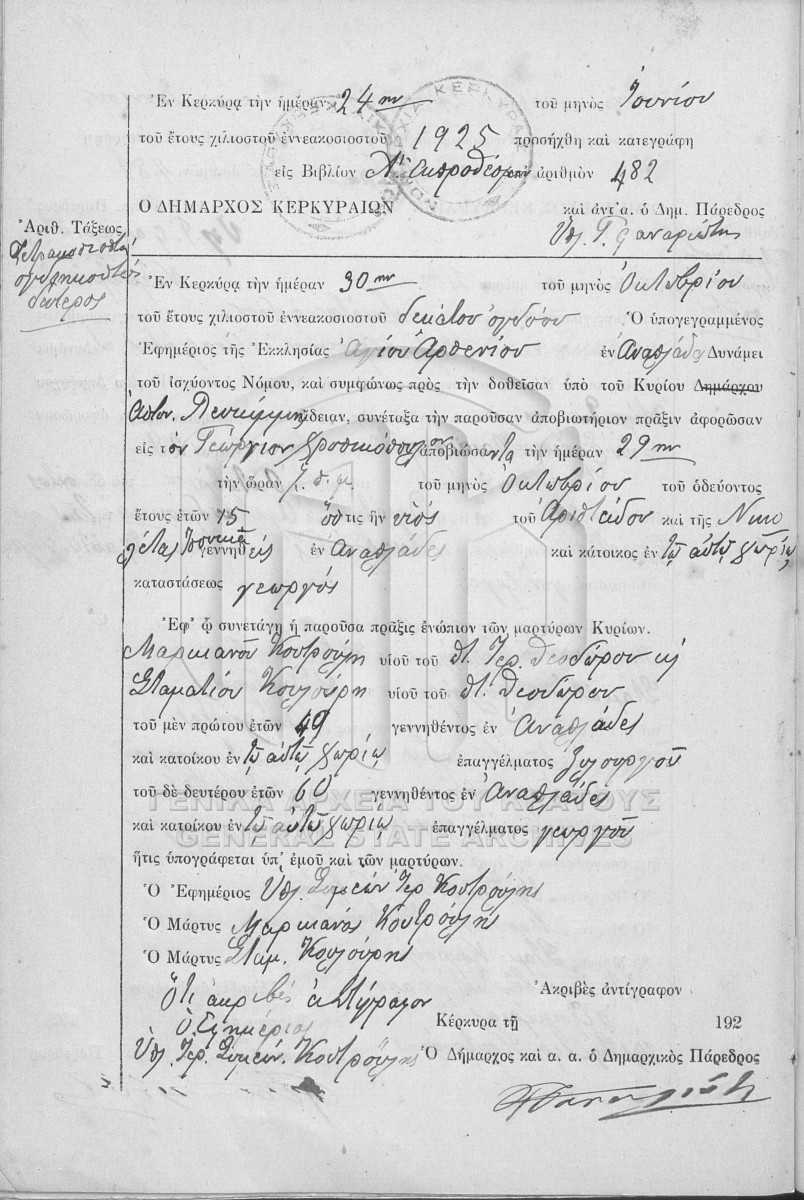 Ἐν Κερκύρᾳ τὴν ἡμέραν 24ην τοῦ μηνὸς Ἰουνίου
τοῦ ἔτους χιλιοστοῦ ἐννεακοσιοστοῦ 1925 προσήχθη καὶ κατεγράφη
εἰς Βιβλίον Λ. ἀκροθέσμων ἀριθμὸν 482
Ο ΔΗΜΑΡΧΟΣ ΚΕΡΚΥΡΑΙΩΝ καὶ ἀντ' α. ὁ Δημ. Πάρεδρος
Ὑπ.
Ἀριθ. Τάξεως
Τετρακοσιοστός
ὀγδοηκοστός
δεύτερος
Ἐν Κερκύρᾳ τὴν ἡμέραν 30ην τοῦ μηνὸς Ὀκτωβρίου
τοῦ ἔτους χιλιοστοῦ ἐννεακοσιοστοῦ δεκάτου ὀγδόου Ὁ ὑπογεγραμμένος
Ἐφημέριος τῆς Ἐκκλησίας Ἁγίου Ἀρσενίου ἐν Ἀναπλάδες Δυνάμει
τοῦ ἰσχύοντος Νόμου, καὶ συμφώνως πρὸς τὴν δοθεῖσαν ὑπὸ τοῦ Κυρίου Δημάρχου
Ἀστυν. Λευκίμμης ἄδειαν, συνέταξα τὴν παροῦσαν ἀποβιωτήριον πρᾶξιν ἀφορῶσαν
εἰς τὸν Γεώργιον ἀποβιώσαντα τὴν ἡμέραν 29ην
τὴν ὥραν 7 π. μ. τοῦ μηνὸς Ὀκτωβρίου τοῦ ὁδεύοντος
ἔτους ἐτῶν 75 ὅστις ἦν υἱὸς τοῦ Ἀριστείδου καὶ τῆς Νικο
λέτας γεννηθεὶς ἐν Ἀναπλάδες καὶ κάτοικος ἐν τῷ αὐτῷ χωρίῳ
καταστάσεως γεωργός
Ἐφ' ᾧ συνετάγη ἡ παροῦσα πρᾶξις ἐνώπιον τῶν μαρτύρων Κυρίων.
Μαρκιανοῦ Κουτρούλη υἱοῦ τοῦ π. Ἱερ. Θεοδώρου κ
Σταματίου Κουλούρη υἱοῦ τοῦ π. Θεοδώρου
τοῦ μὲν πρώτου ἐτῶν 49 γεννηθέντος ἐν Ἀναπλάδες
καὶ κατοίκου ἐν τῷ αὐτῷ χωρίῳ ἐπαγγέλματος ξυλουργοῦ
τοῦ δὲ δευτέρου ἐτῶν 60 γεννηθέντος ἐν Ἀναπλάδες
ΓΕΝΙΚΑ ΑΡΧΕΙΑ ΤΟΥ ΚΡΑΤΟΥΣ
καὶ κατοίκου ἐν τῷ αὐτῷ χωρίῳ ἐπαγγέλματος γεωργοῦ
GENERAL STATE ARCHIVES
ἥτις ὑπογράφεται ὑπ' ἐμοῦ καὶ τῶν μαρτύρων.
Ὁ Ἐφημέριος Ὑπ. Συμεὼν Ἱερ. Κουτρούλης
Ὁ Μάρτυς Μαρκιανός Κουτρούλης
Ὁ Μάρτυς Σταμ. Κουλούρης
Ὅτι ἀκριβές ἀντίγραφον Ἀκριβὲς ἀντίγραφον
Ὁ Ἐφημέριος Κέρκυρα τῇ 192
Ὑπ. Ἱερ. Συμεών. Κουτρούλης Ὁ Δήμαρχος καὶ α. α. ὁ Δημαρχικὸς Πάρεδρος